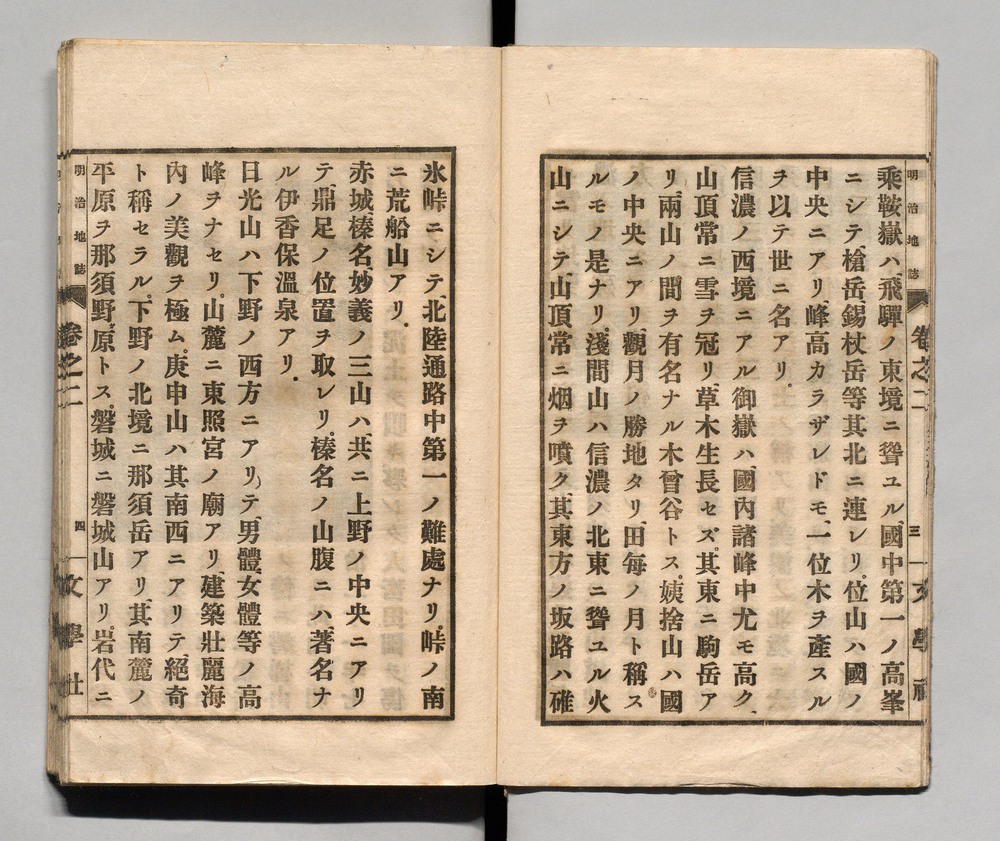 明治地誌 卷之二 三 文學社
乘鞍嶽ハ、飛驒ノ東境ニ聳ユル、國中第一ノ高峯
ニシテ、槍岳、錫杖岳等其北ニ連レリ、位山ハ國ノ
中央ニアリ、峰高カラザレドモ、一位木ヲ產スル
ヲ以テ世ニ名アリ。
信濃ノ西境ニアル御嶽ハ、國內諸峰中尤モ高ク、
山頂常ニ雪ヲ冠リ、草木生長セズ、其東ニ駒岳ア
リ、兩山ノ間ヲ有名ナル木曾谷トス、姨捨山ハ國
ノ中央ニアリ、觀月ノ勝地タリ、田每ノ月ト稱ス
ルモノ是ナリ、淺間山ハ信濃ノ北東ニ聳ユル火
山ニシテ、山頂常ニ烟ヲ噴ク、其東方ノ坂路ハ碓
氷峠ニシテ、北陸通路中第一ノ難處ナリ、峠ノ南
ニ荒船山アリ。
赤城、榛名、妙義ノ三山ハ、共ニ上野ノ中央ニアリ
テ、鼎足ノ位置ヲ取レリ、榛名ノ山腹ニハ、著名ナ
ル伊香保溫泉アリ。
日光山ハ、下野ノ西方ニアリテ、男體、女體等ノ高
峰ヲナセリ、山麓ニ東照宮ノ廟アリ、建築壯麗海
內ノ美觀ヲ極ム、庚申山ハ其南西ニアリテ、絕奇
ト稱セラル、下野ノ北境ニ那須岳アリ、其南麓ノ
平原ヲ那須野原トス、磐城ニ磐城山アリ、岩代ニ
明治地誌 卷之二 四 文學社